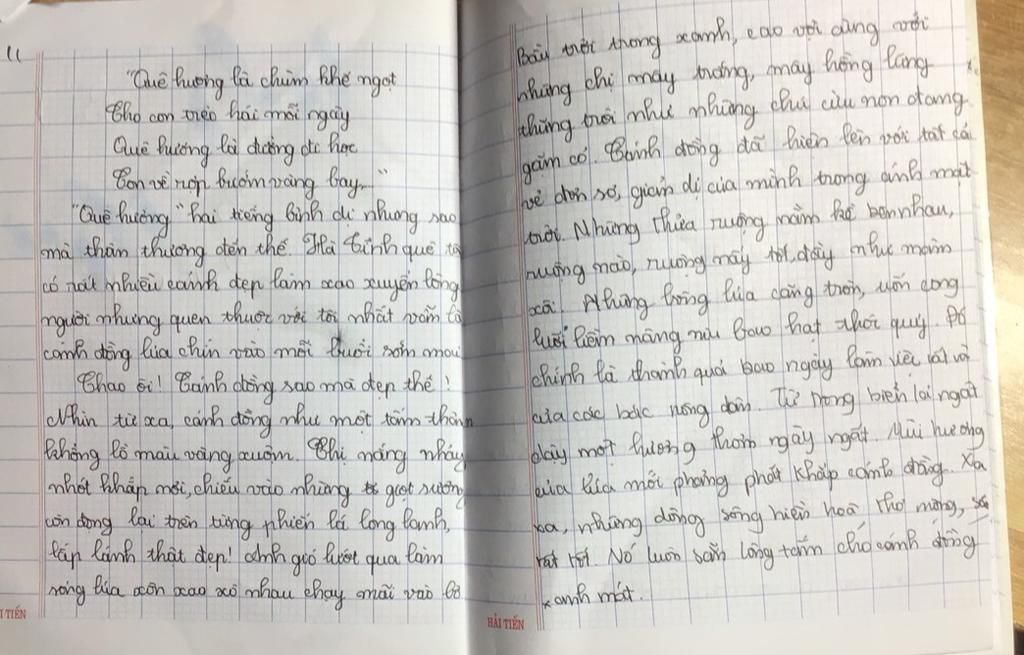 "Quê hương là chùm khế ngọt
Cho con trèo hái mỗi ngày
Quê hương là đường đi học
Con về rợp bướm vàng bay..."
"Quê hương" hai tiếng bình dị nhưng sao
mà thân thương đến thế. Hà Tĩnh quê tôi
có rất nhiều cảnh đẹp làm xao xuyến lòng
người nhưng quen thuộc với tôi nhất vẫn là
cánh đồng lúa chín vào mỗi buổi sớm mai
Chao ôi! Cánh đồng sao mà đẹp thế!
Nhìn từ xa, cánh đồng như một tấm thảm
khổng lồ màu vàng xuộm. Chị nắng nhảy
nhót khắp nơi, chiếu vào những giọt sương
còn đọng lại trên từng phiến lá long lanh,
lấp lánh thật đẹp! Anh gió lướt qua làm
sóng lúa xôn xao xô nhau chạy mãi vào bờ
Bầu trời trong xanh, cao vợi cùng với
những chị mây trắng, mây hồng lang
thang trôi như những chú cừu non đang
gặm cỏ. Cánh đồng đã hiện lên với tất cả
vẻ đơn sơ, giản dị của mình trong ánh mặt
trời. Những thửa ruộng nằm kề bên nhau,
ruộng nào, ruộng nấy tốt, đầy như mâm
xôi. Những bông lúa căng tròn, uốn cong
lưỡi liềm mang níu bao hạt thóc quý. Đó
chính là thành quả bao ngày làm việc vất vả
của các bác nông dân. Từ trong biển lại ngất
dậy một hương thơm ngây ngất. Mùi hương
của lúa mới phảng phất khắp cánh đồng. Xa
xa, những dòng sông hiền hoà thơ mộng,
rất tốt. Nó luôn sẵn lòng tắm cho cánh đồng
xanh mát.
HẢI TIẾN
I TIẾN